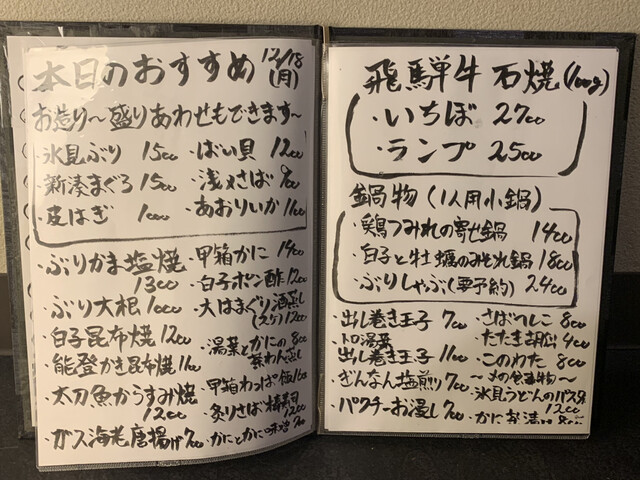 本日のおすすめ 12/18 (月)
お造り〜盛りあわせもできます〜
・氷見ぶり 1500 ・ばい貝 1200
・新湊まぐろ 1500 ・浅〆さば 900
・皮はぎ 1000 ・あおりいか 1100
・ぶりかま塩焼 1300
・ぶり大根 1000
・白子昆布焼 1200
・能登かき昆布焼 1100
・太刀魚からすみ焼 1200
・ガス海老唐揚げ 700
・甲箱かに 1400
・白子ポン酢 1200
・大はまぐり酒蒸し (2ヶ) 1200
・湯葉とかにの茶わん蒸し 800
・甲箱わっぱ飯
・炙りさば棒寿司 1200
・かにとかに味噌
飛騨牛 石焼 (100g)
・いちぼ 2700
・ランプ 2500
鍋物 (1人用小鍋)
・鶏つみれの寄せ鍋 1400
・白子と牡蠣のみぞれ鍋 1800
・ぶりしゃぶ(要予約) 2400
・出し巻き玉子 700
・トロ湯葉
出し巻き玉子 1100
・ぎんなん塩煎り 700
・パクチーお浸し 700
・さばへしこ 800
・たたき胡瓜 400
・このわた 800
〜〆の食事物〜
・氷見うどんの 1200
・かに 800